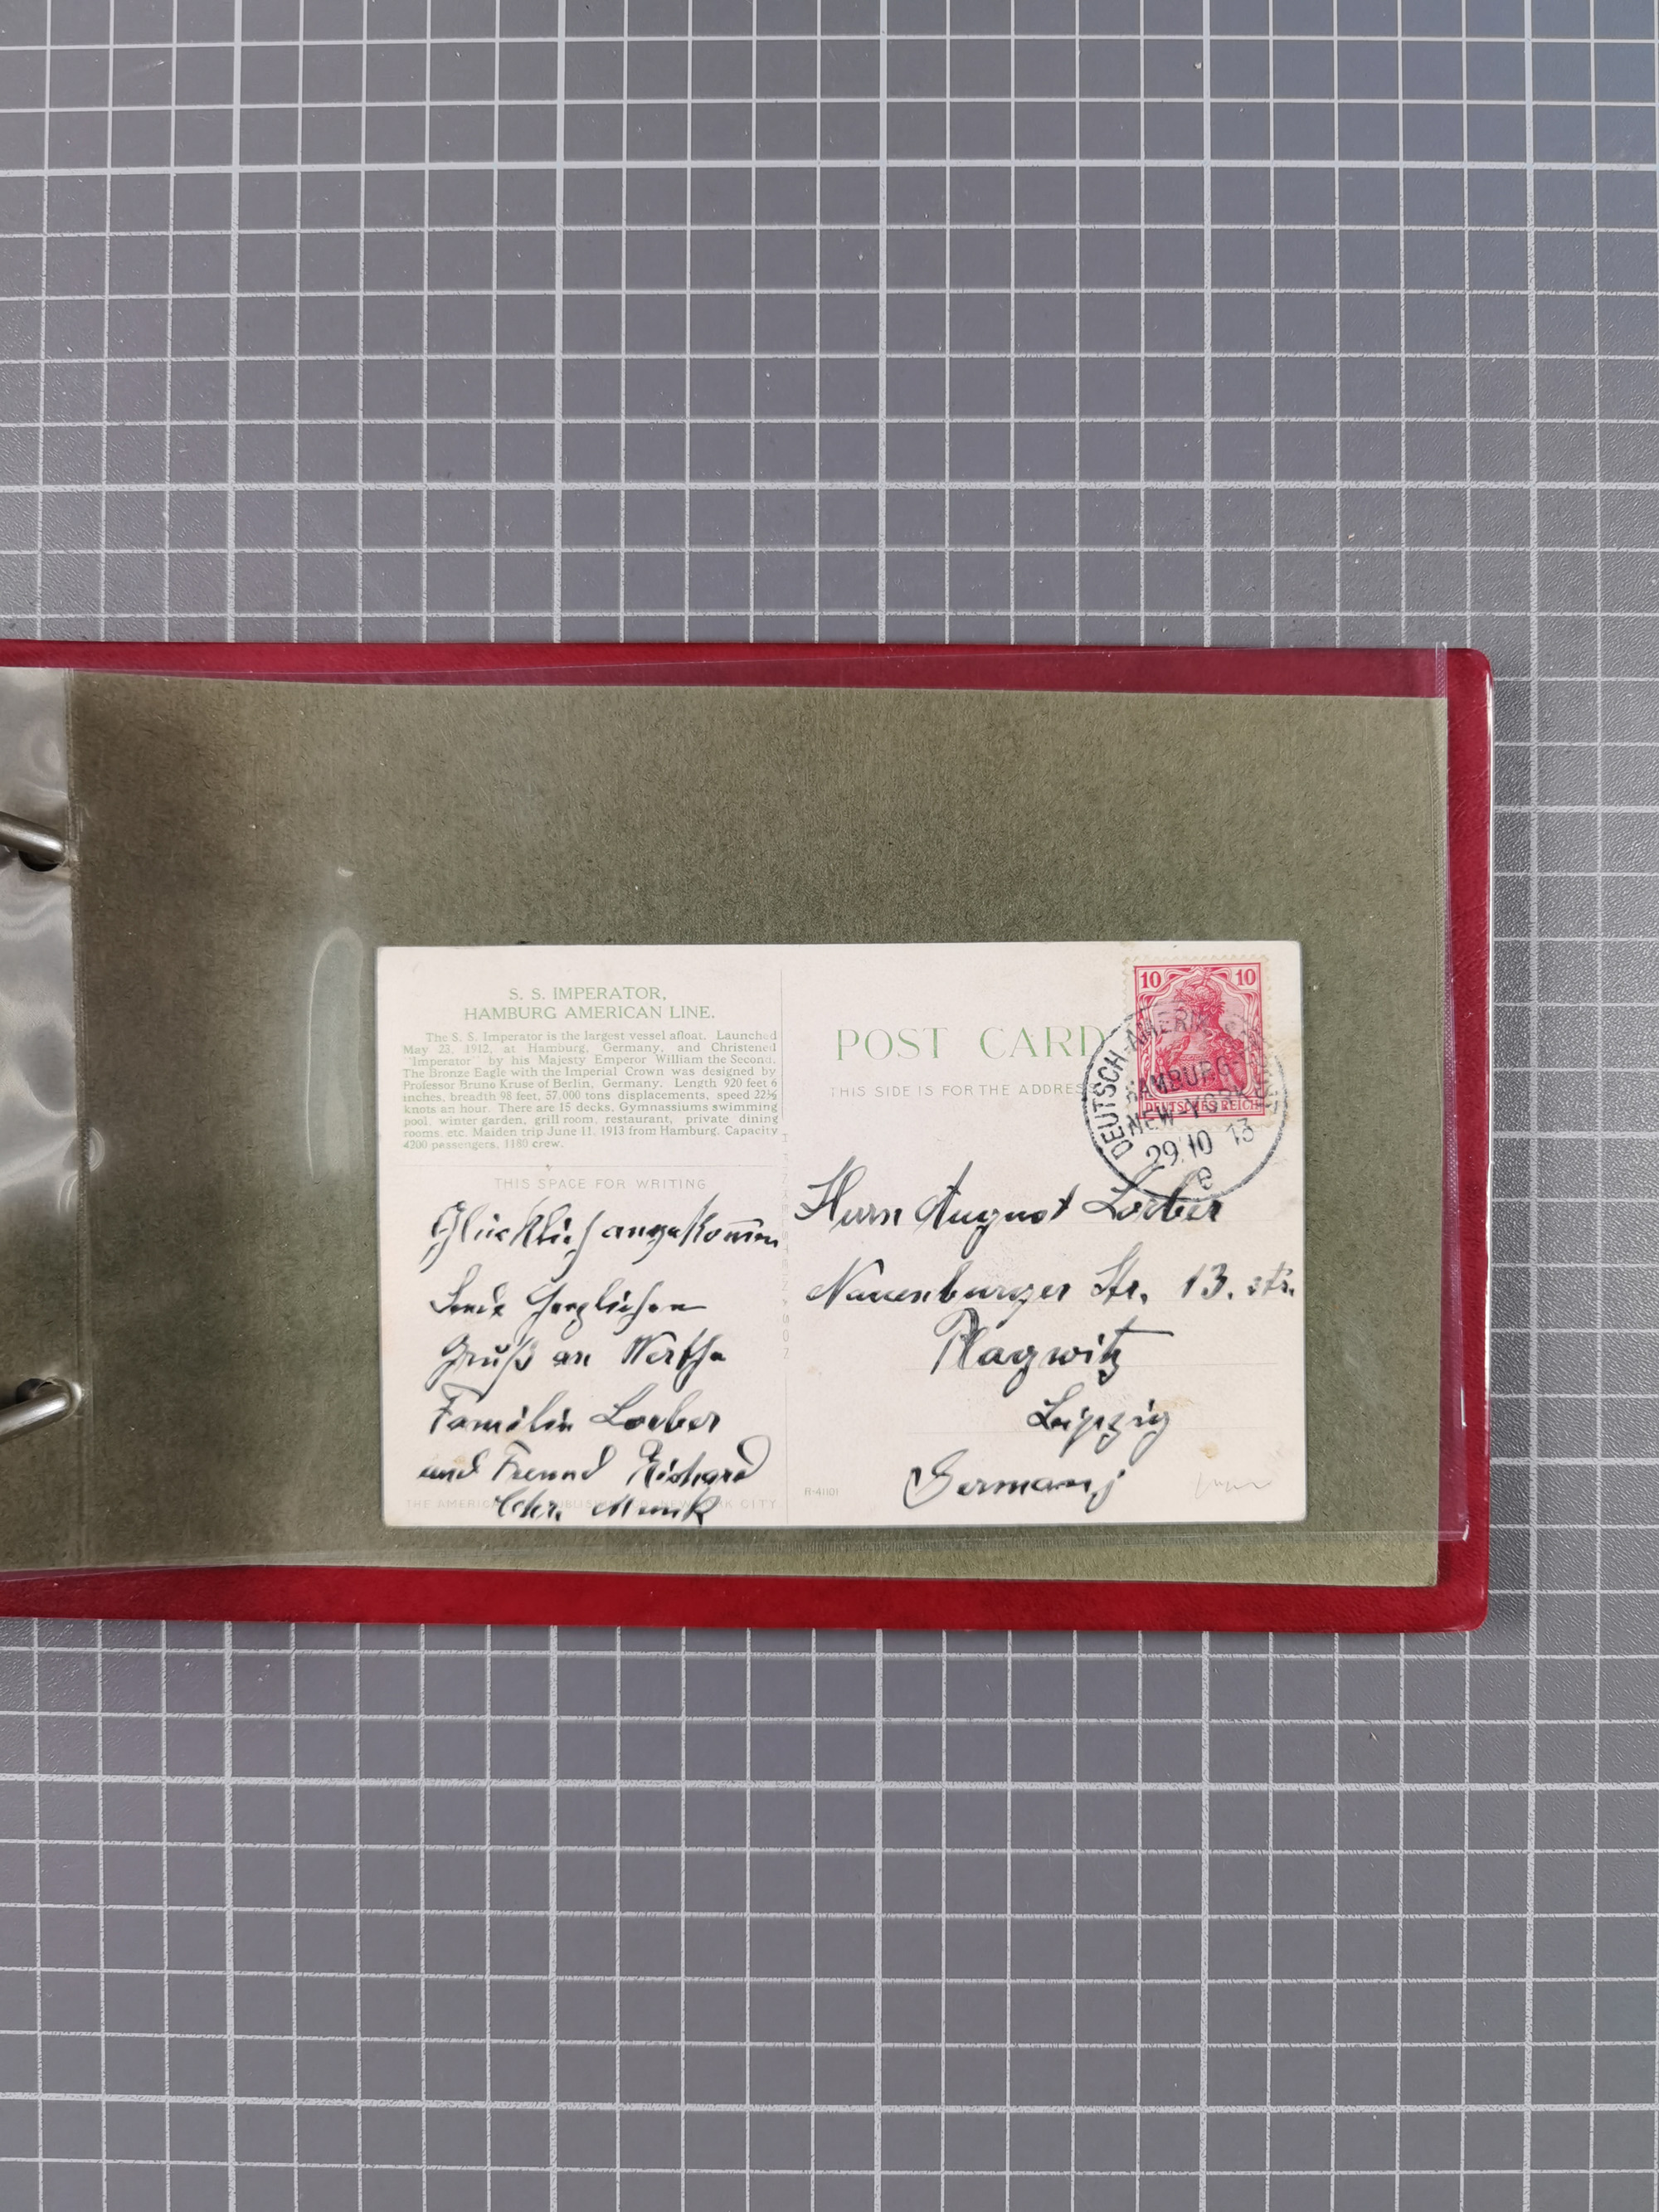 S. S. IMPERATOR,
HAMBURG AMERICAN LINE.
The S. S. Imperator is the largest vessel afloat. Launched
May 23, 1912, at Hamburg, Germany, and Christened
"Imperator" by his Majesty Emperor William the Second.
The Bronze Eagle with the Imperial Crown was designed by
Professor Bruno Kruse of Berlin, Germany. Length 920 feet 6
inches, breadth 98 feet, 57,000 tons displacements, speed 22½
knots an hour. There are 15 decks, Gymnassiums swimming
pool, winter garden, grill room, restaurant, private dining
rooms, etc. Maiden trip June 11, 1913 from Hamburg. Capacity
4200 passengers, 1180 crew.
THIS SPACE FOR WRITING
Glücklich angekommen
Sende Herzlichen
Gruß an Werthe
Familie Loeber
und Freund Richard
Chr. Munk
THE AMERICA CITY
POST CARD
THIS SIDE IS FOR THE ADDRESS
10 10
DEUTSCHES REICH
DEUTSCH-AMERIK.
HAMBURG-
NEW-YORK
29.10 13
e
Herrn August Loeber
Nauenburger Str. 13. etr.
Plagwitz
Leipzig
Germany
R-41101